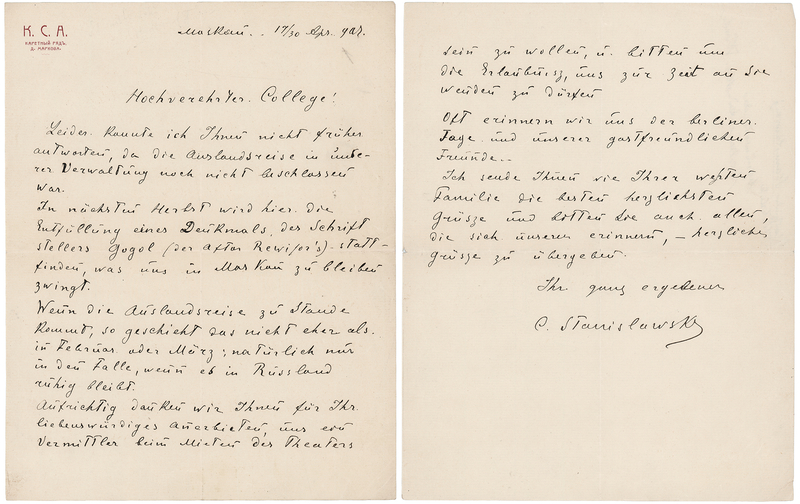 К. С. А.
КАРЕТНЫЙ РЯДЪ
Д. МАРКОВА.
Moskau. . 17/30 Apr. 907.
Hochverehrter. College!
Leider. konnte ich Ihnen nicht früher
antworten, da die Auslandsreise in unse-
rer Verwaltung noch nicht beschlossen
war.
In nächsten Herbst wird hier. die
Entfüllung eines Denkmals, des Schrift
stellers Gogol (der Aftor Rewisor's). statt-
finden, was uns in Moskau zu bleiben
zwingt.
Wenn die Auslandsreise zu Stande
kommt, so geschieht das nicht eher als.
in Februar oder März; natürlich nur
in den Falle, wenn es in Russland
ruhig bleibt.
Aufrichtig danken wir Ihnen für Ihr
liebenswürdiges Anerbieten, uns ein
Vermittler beim Mieten des Theaters
sein zu wollen, u. bitten um
die Erlaubniss, uns zur Zeit an Sie
wenden zu dürfen
Oft erinnern wir uns der berliner.
Tage und unserer gastfreundlichen
Freunde..
Ich sende Ihnen wie Ihrer werten
Familie die besten herzlichsten
Grüsse und bitten Sie auch allen,
die sich unserer erinnern, – herzliche
Grüsse zu übergeben.
Ihr ganz ergebener
C. Stanislawsky